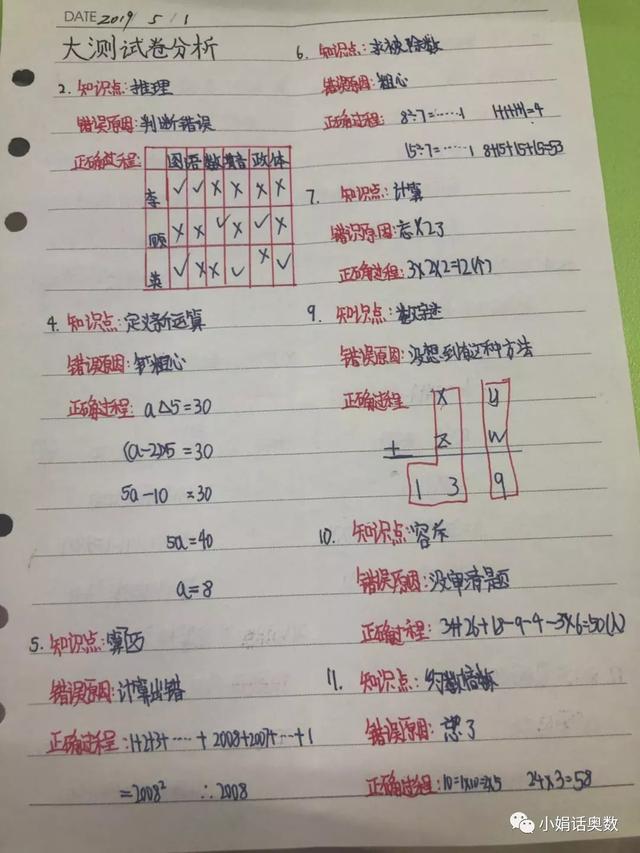 DATE 2019 / 5 / 1
大测试卷分析
2. 知识点:推理
错误原因:判断错误
正确过程:
国 语 数 音 政 体
李 ✓ ✓ × × × ×
顾 × × ✓ × ✓ ×
类 ✓ × × ✓ × ✓
4. 知识点:定义新运算
错误原因:粗心
正确过程:a△5=30
(a-2)×5=30
5a-10=30
5a=40
a=8
5. 知识点:算
错误原因:计算出错
正确过程:1+2+3+……+2008+2007+…+1
=2008² ∴2008
6. 知识点:求被除数
错误原因:粗心
正确过程:8÷7=……1 1+1+1+1=4
15÷7=……1 8+15+15+15=53
7. 知识点:计算
错误原因:忘×2了
正确过程:3×2×2=12(个)
9. 知识点:数字谜
错误原因:没想到有这种方法
正确过程
x y
+ z w
1 3 9
10. 知识点:容斥
错误原因:没审清题
正确过程:34+26+18-9-4-3×6=50(人)
11. 知识点:约数倍数
错误原因:忘了
正确过程:10=1×10=2×5 24×3=58
小娟话奥数